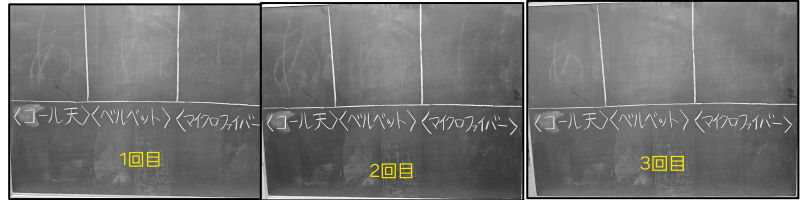 あ あ あ
<コール天><ベルベット><マイクロファイバー
1回目
あ あ あ
<コール天><ベルベット><マイクロファイバー>
2回目
あ
<コール天><ベルベット><マイクロファイバー>
3回目